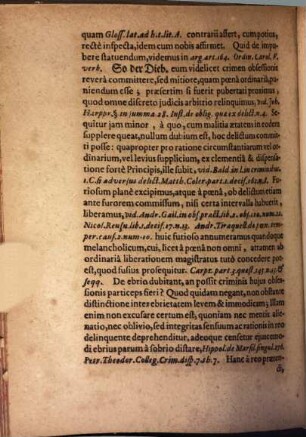 quam Gloss. lat. ad h. t. lit. A. contrarii assert, cum potius,
rectè inspecta, idem cum nobis affirmet. Quid de impu-
bere statuendum, videmus in arg. art. 164. Ordin. Carol. V.
verb. So der Dieb, eum videlicet crimen obsessionis
reverà committere, sed mitiore, quam pœnâ ordinariâ, pu-
niendum esse; præsertim si fuerit pubertati proximus;
quod omne discreto judicis arbitrio relinquimus, vid. Joh.
Harppr. in summa. 28. Inst. de oblig. quæ ex delict. n. 4. Se-
quitur jam minor, à quo, cum malitia ætatem in eodem
supplere queat, nullum dubium est, hoc delictum commit-
ti posse: quapropter pro ratione circumstantiarum vel or-
dinarium, vel levius supplicium, ex clementiâ & dispensa-
tione fortè Principis, ille subit, vid. Bald in l. in criminalib.
1. C. si adversus delict. Matth. Coler. part. 1. decis. 161. n. 8.
Furiosum planè excipimus, atque à pœnâ, ob delictum etiam
ante furorem commissum, nisi certa intervalla habuerit,
liberamus, vid. And. Gail. in obs. pract. lib. 2. obs. 110. num. 21.
Nicol. Reusn. lib. 2. decis. 17. n. 13. Andr. Tiraquell. de pœn. tem-
per. caus. 2. num. 10. huic furioso annumeramus quatuoque
melancholicum, cui, licet à pœnâ non omni, attamen ab
ordinariâ liberationem magistratus tutò concedere pot-
est, quod fusius prosequitur. Carpz. part. 3. quæst. 145. n. 15. &
seqq. De ebrio dubitant, an possit criminis hujus ob-
sessionis particeps fieri? Quod quidam negant, non obstante
distinctione inter ebrietatem levem & immodicam; illam
enim non excusare certum est, quoniam nec mentis alie-
natio, nec oblivio, sed integritas sensuum ac rationis in reo
delinquente deprehenditur, adeoque censetur ejusmo-
di ebrius parum à sobrio distare, Hippol. de Marsil. singul. 156.
Petr. Theodor. Colleg. Crim. disp. 7. th. 7. Hanc à reo præten-
di,